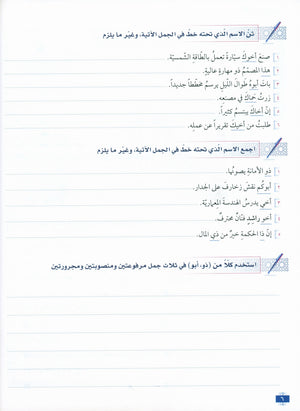 ثنّ الاسم الّذي تحته خطّ في الجمل الآتية، وغيّر ما يلزم
١ صنعَ أخوكَ سيّارةً تعملُ بالطّاقةِ الشّمسيّة.
٢ هذا المصمّمُ ذو مهارةٍ عاليةٍ.
٣ باتَ أبوهُ طوالَ اللّيلِ يرسمُ مخطّطاً جديداً.
٤ زرتُ حَماكَ في مصنعه.
٥ إنّ أخاكَ يبتسمُ كثيراً.
٦ طلبتُ من أخيكَ تقريراً عن عمله.
اجمع الاسم الّذي تحته خطّ في الجمل الآتية، وغيّر ما يلزم
١ ذو الأمانةِ يصونُها.
٢ أبوكُم نقشَ زخارفَ على الجدار.
٣ أخي يدرسُ الهندسةَ المعماريّة.
٤ أخو راشدٍ فنّانٌ محترفٌ.
٥ إنّ ذا الحكمةِ خيرٌ من ذي المال.
استخدم كلّاً من (ذو، أبو) في ثلاث جمل مرفوعتين ومنصوبتين ومجرورتين
٦